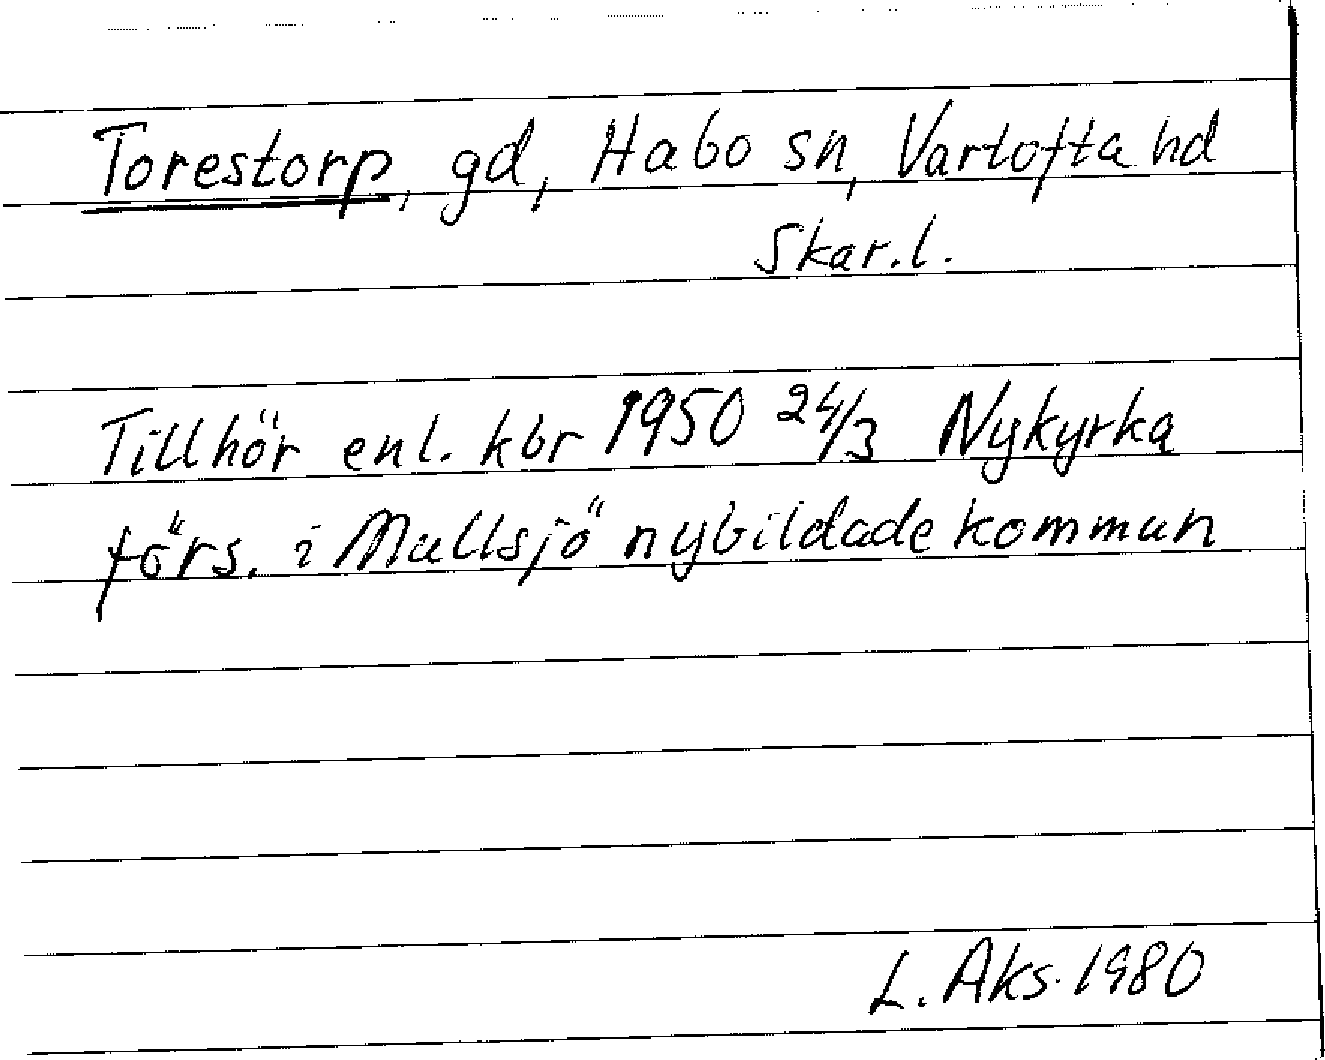 Torestorp, gd, Habo sn, Vartofta hd
Skar.l.
Tillhör enl. kbr 1950 24/3 Nykyrka
förs. i Mullsjö nybildade kommun
L. Aks. 1980